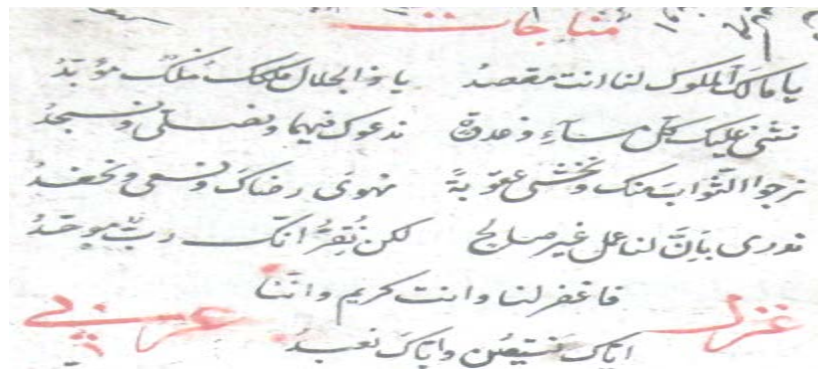 مناجات
يا مالك الملوك لنا انت مقصدُ يا ذا الجلال ملكك مُلكٌ مؤبّدُ
نثني عليك كل مسآءٍ وغدوة ندعوك فيهما ونصلّي ونسجدُ
نرجوا الثّوابَ منك ونخشى عقوبةً نهوى رضاكَ ونسعى ونحفدُ
ندرى بأنَّ لنا عمل غير صالح لكن نُقِرُّ انّك ربٌّ موحّدُ
فاغفر لنا وانت كريم وانّنا
غزل عربي
اياك نستعين واياك نعبدُ